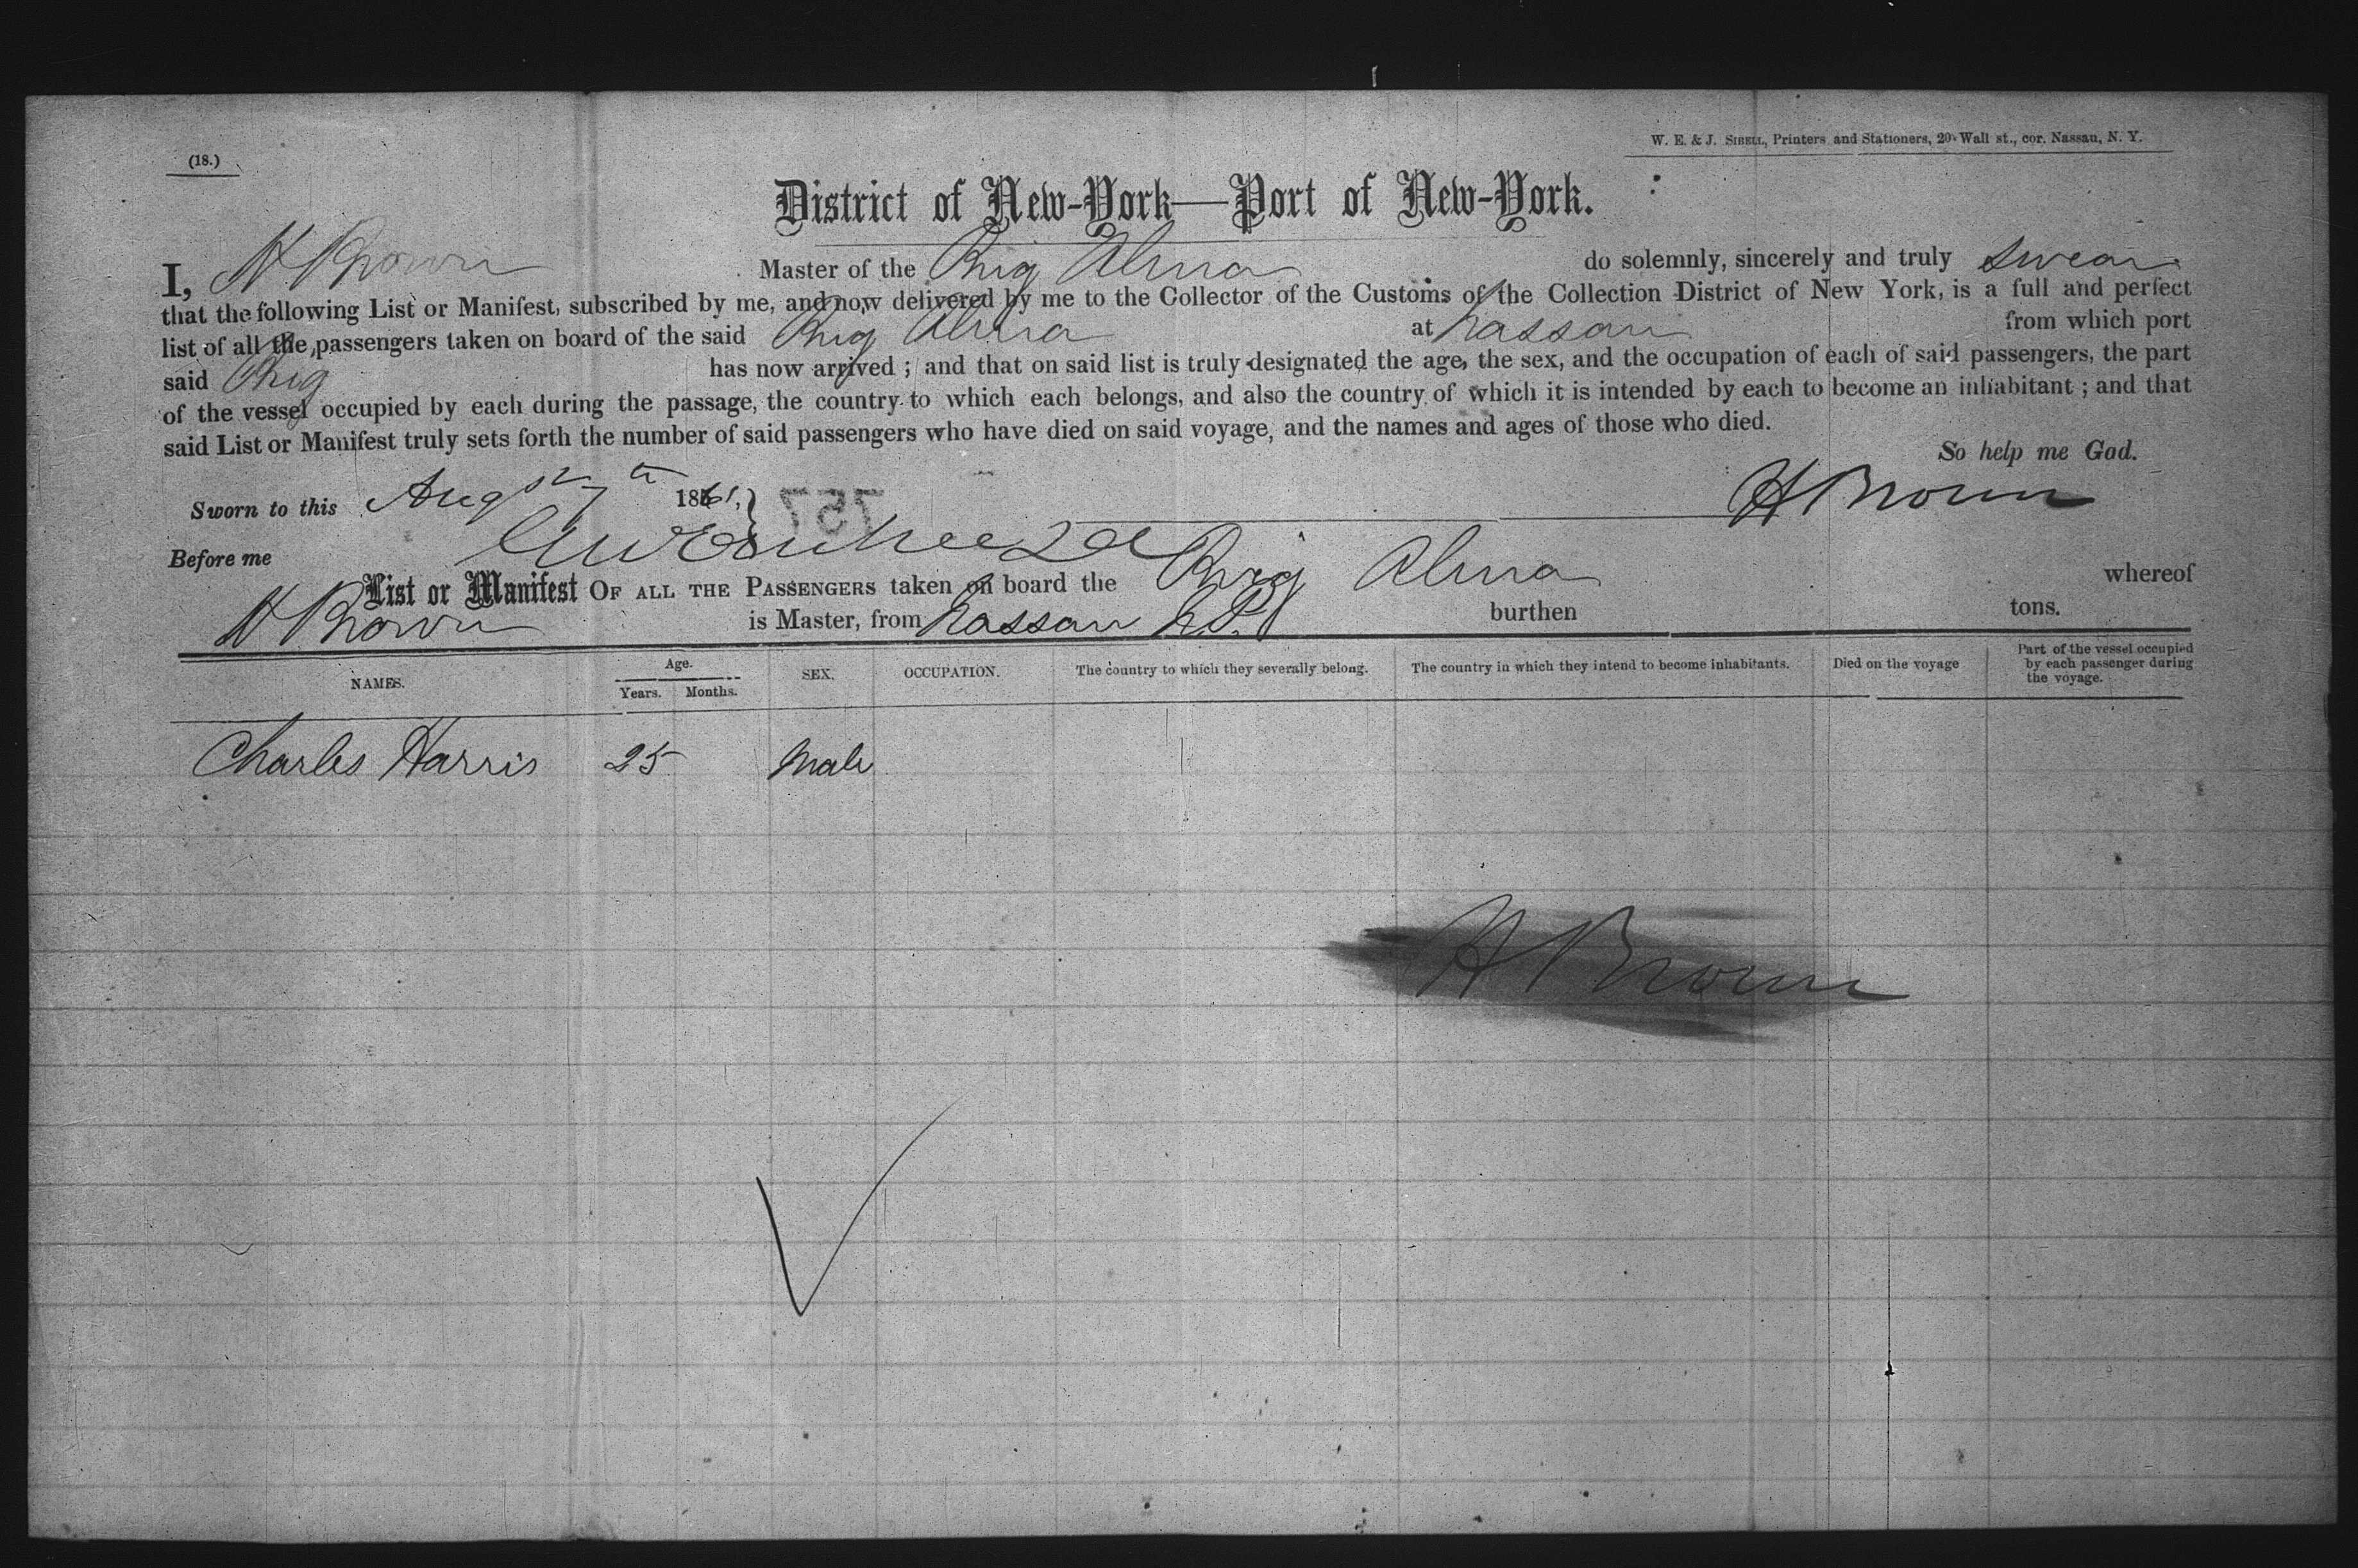 (18.)
W. E. & J. Sibell, Printers and Stationers, 20 Wall st., cor. Nassau, N. Y.
District of New-York—Port of New-York.
I, H Brown Master of the Brig Alma do solemnly, sincerely and truly swear
that the following List or Manifest, subscribed by me, and now delivered by me to the Collector of the Customs of the Collection District of New York, is a full and perfect
list of all the passengers taken on board of the said Brig Alma at Nassau from which port
said Brig has now arrived ; and that on said list is truly designated the age, the sex, and the occupation of each of said passengers, the part
of the vessel occupied by each during the passage, the country to which each belongs, and also the country of which it is intended by each to become an inhabitant ; and that
said List or Manifest truly sets forth the number of said passengers who have died on said voyage, and the names and ages of those who died.
So help me God.
Sworn to this Augst 7th 1861, 757 H Brown
Before me
List or Manifest OF ALL THE PASSENGERS taken on board the Brig Alma whereof
H Brown is Master, from Nassau N.P. burthen tons.
NAMES. Age. Years. Months. SEX. OCCUPATION. The country to which they severally belong. The country in which they intend to become inhabitants. Died on the voyage Part of the vessel occupied by each passenger during the voyage.
Charles Harris 25 Male
H Brown